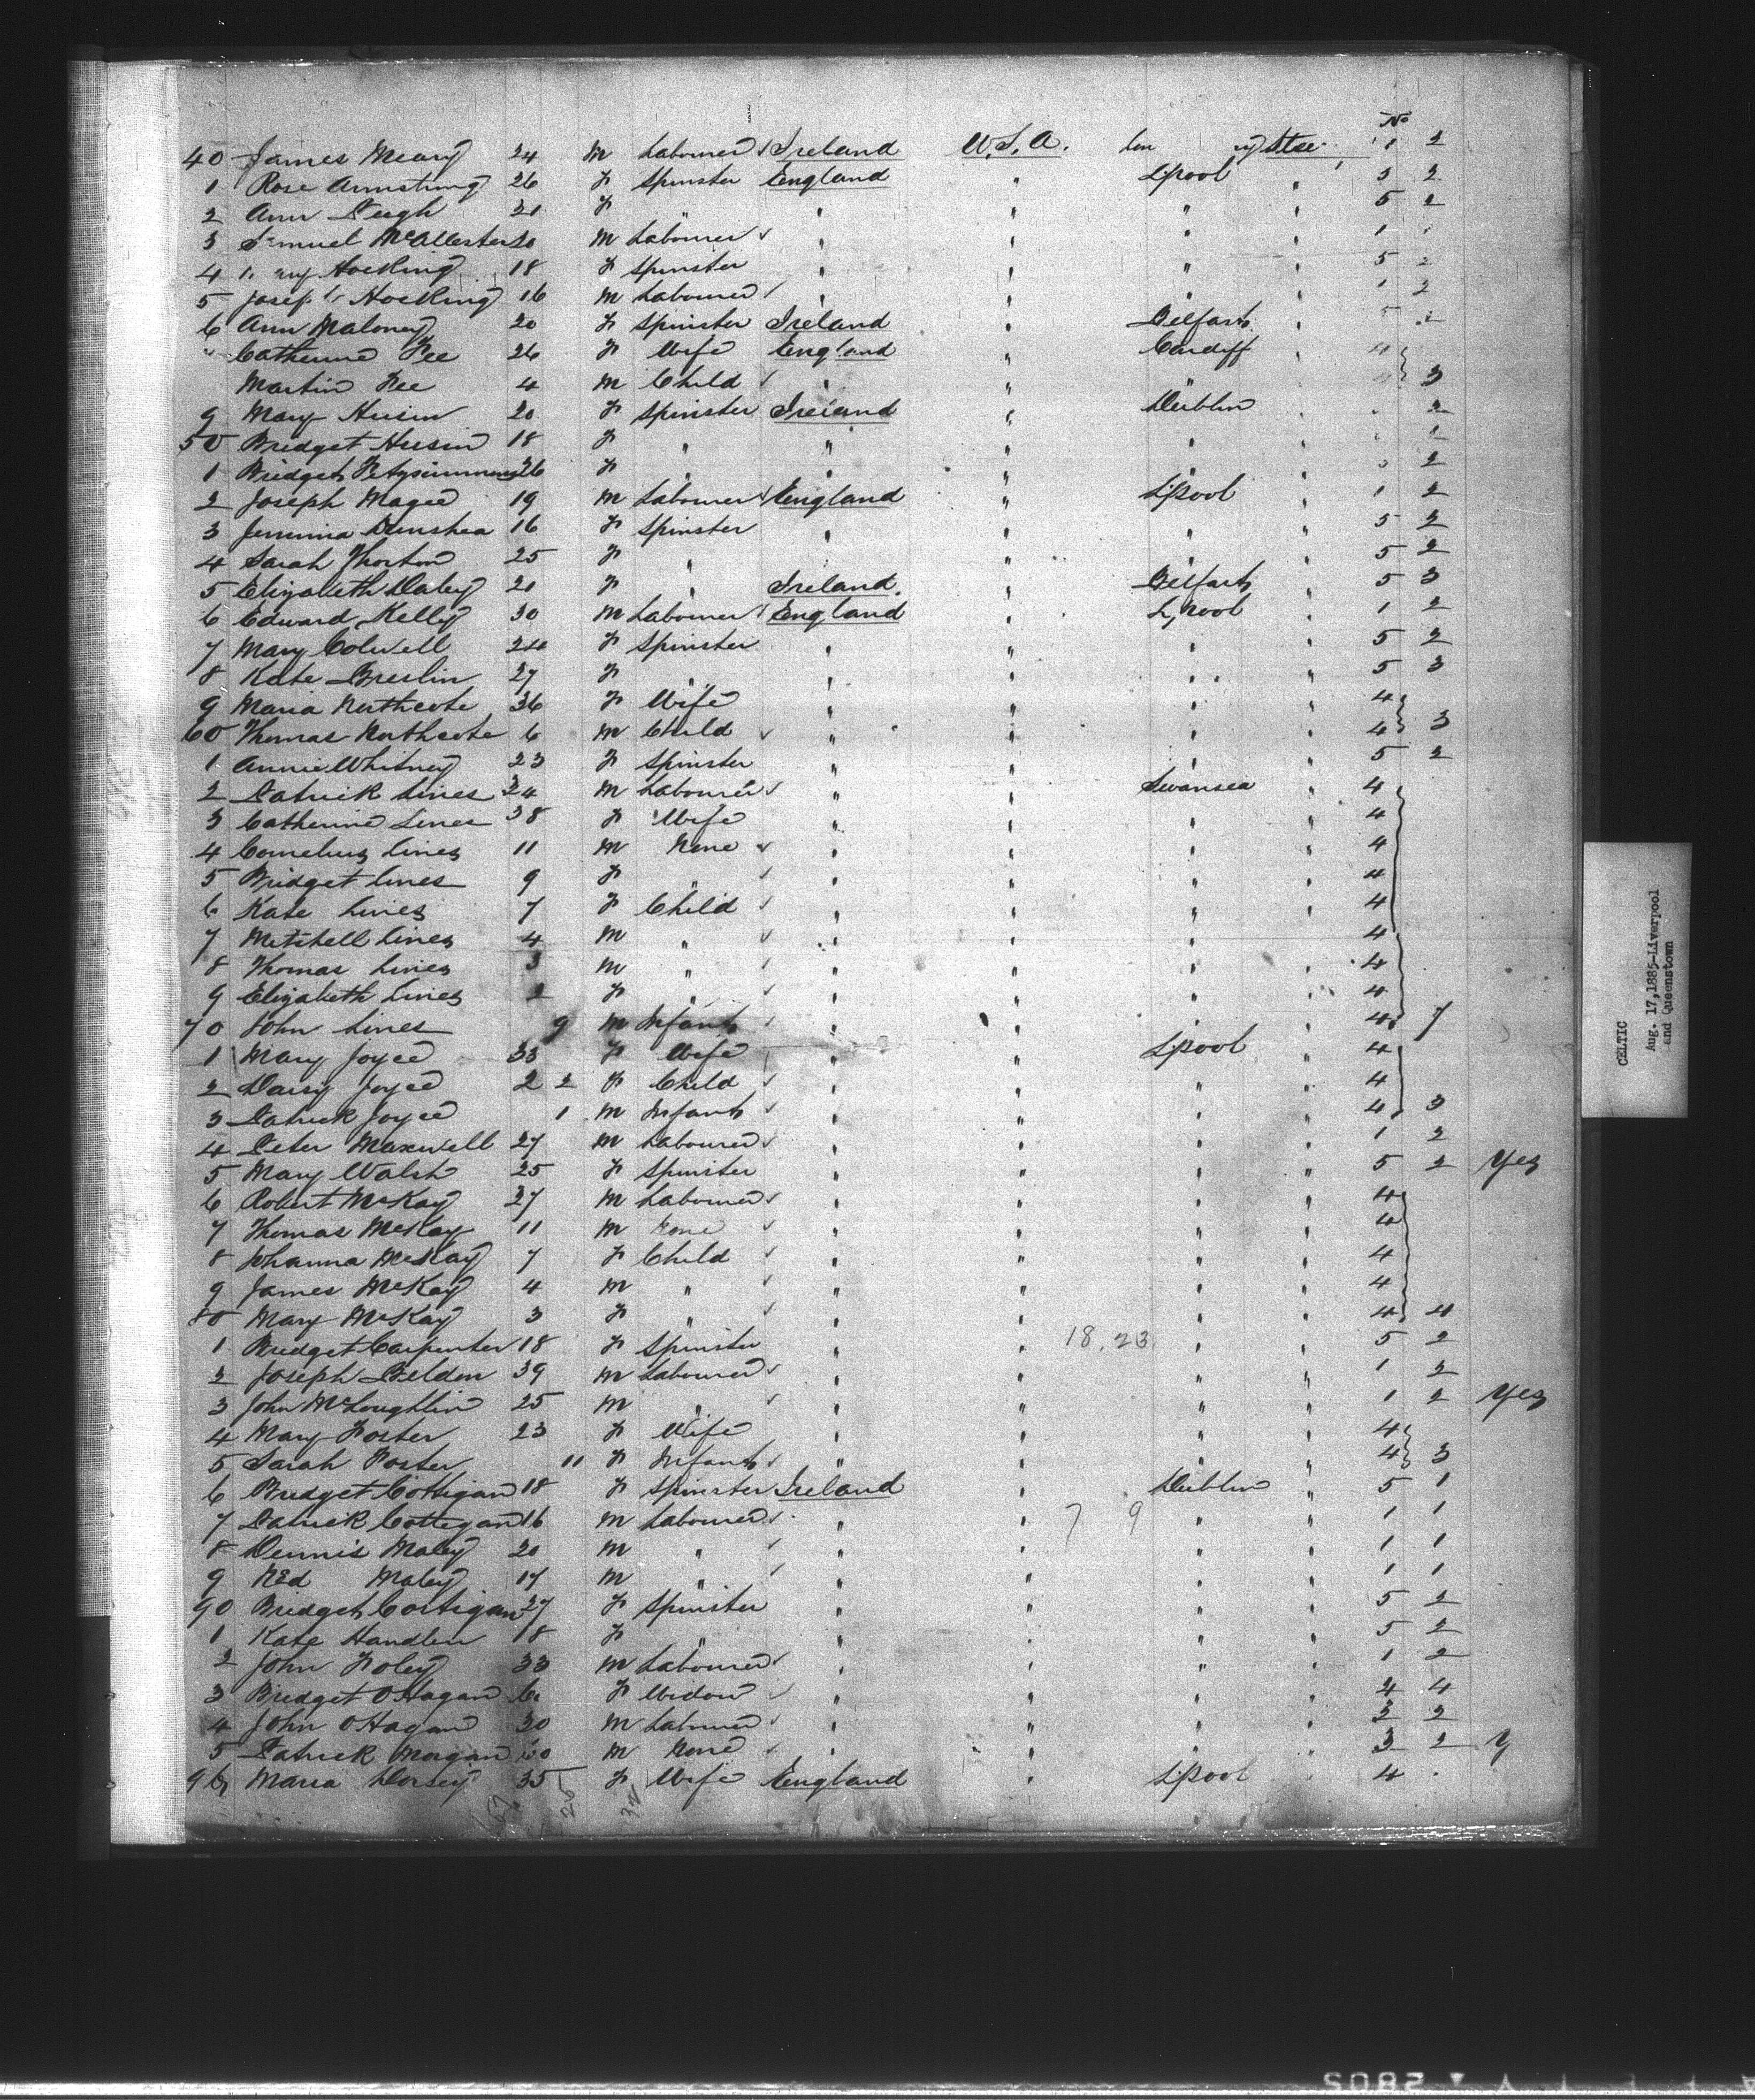 No
40 James Meary 24 M Labourer Ireland U.S.A. Stee 1 2
1 Rose Armstrong 26 F Spinster England " L'pool " 5 2
2 Ann Pugh 21 F " " " " " 5 2
3 Samuel McAllester 20 M Labourer " " " " 1
4 Hocking 18 F Spinster " " " " 5 2
5 Joseph Hocking 16 M Labourer " " " " 1 2
6 Ann Maloney 20 F Spinster Ireland " Belfast " 5 2
" Catherine Fee 26 F Wife England " Cardiff " 4
Martin Fee 4 M Child " " " " 3
9 Mary Heisin 20 F Spinster Ireland " Dublin " 2
50 Bridget Heisin 18 F " " " " "
1 Bridget Fitzsimmons 26 F " " " " " 2
2 Joseph Magee 19 M Labourer England " L'pool " 1 2
3 Jemima Dunshea 16 F Spinster " " " " 5 2
4 Sarah Thorton 25 F " " " " " 5 2
5 Elizabeth Daley 21 F " Ireland. " Belfast " 5 3
6 Edward Kelly 30 M Labourer England " L'pool " 1 2
7 Mary Colwell 24 F Spinster " " " " 5 2
8 Kate Breslin 27 F " " " " " 5 3
9 Maria Northcote 36 F Wife " " " " 4
60 Thomas Northcote 6 M Child " " " " 4 3
1 Annie Whitney 23 F Spinster " " " " 5 2
2 Patrick Lines 34 M Labourer " " Swansea " 4
3 Catherine Lines 38 F Wife " " " " 4
4 Cornelius Lines 11 M None " " " " 4
5 Bridget Lines 9 F " " " " " 4
6 Kate Lines 7 F Child " " " " 4
7 Mitchell Lines 4 M " " " " " 4
8 Thomas Lines 3 M " " " " " 4
9 Elizabeth Lines 2 F " " " " " 4
70 John Lines 9 M Infant " " " " 4 7
1 Mary Joyce 33 F Wife " " L'pool " 4
2 Daisy Joyce 2 2 F Child " " " " 4
3 Patrick Joyce 1 M Infant " " " " 4 3
4 Peter Maxwell 27 M Labourer " " " " 1 2
5 Mary Walsh 25 F Spinster " " " " 5 2 Yes
6 Robert McKay 37 M Labourer " " " " 4
7 Thomas McKay 11 M None " " " " 4
8 Johanna McKay 7 F Child " " " " 4
9 James McKay 4 M " " " " " 4
80 Mary McKay 3 F " " " " " 4 4
1 Bridget Carpenter 18 F Spinster " " 18.23 " " 5 2
2 Joseph Belden 39 M Labourer " " " " 1 2
3 John McLoughlin 25 M " " " " " 1 2 Yes
4 Mary Foster 23 F Wife " " " " 4
5 Sarah Foster 11 F Infant " " " " 4 3
6 Bridget Cottigan 18 F Spinster Ireland " Dublin " 5 1
7 Patrick Cottigan 16 M Labourer " " 7 9 " " 1 1
8 Dennis Maley 20 M " " " " " 1 1
9 Ned Maley 17 M " " " " " 1 1
90 Bridget Cortigan 27 F Spinster " " " " 5 2
1 Kate Handlen 18 F " " " " " 5 2
2 John Foley 33 M Labourer " " " " 1 2
3 Bridget O'Hagan F Widow " " " " 4
4 John O'Hagan 30 M Labourer " " " " 3 2
5 Patrick Morgan M None " " " " 3 2 Y
96 Maria Dorsey 35 F Wife England " L'pool " 4
CELTIC
Aug. 17,1885-Liverpool
and Queenstown